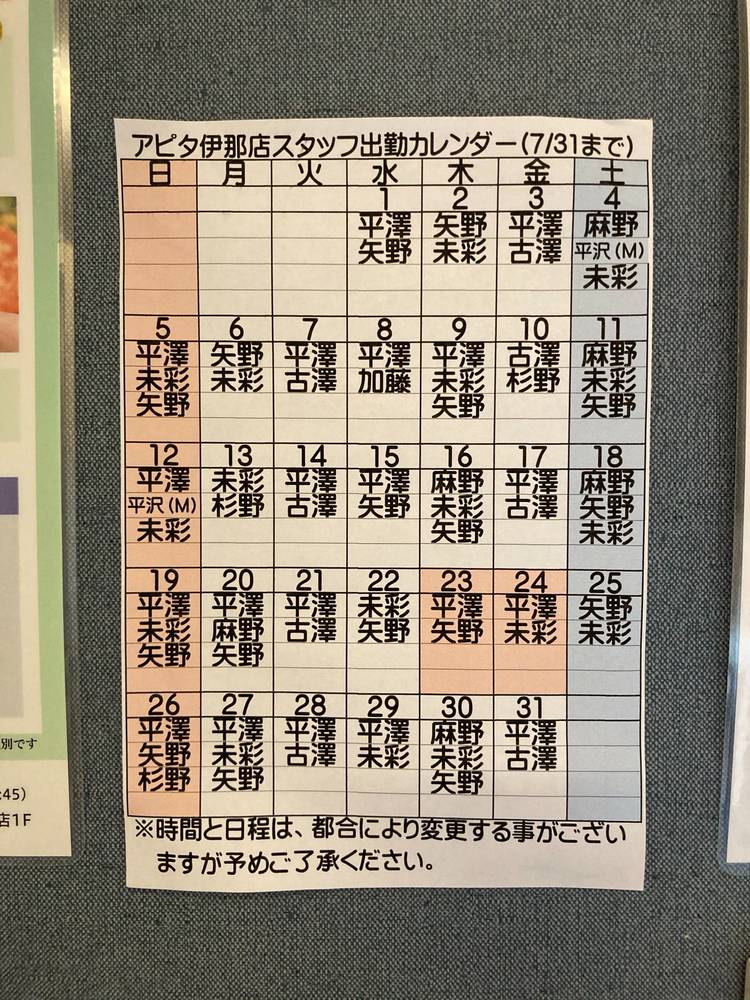 アピタ伊那店スタッフ出勤カレンダー(7/31まで)
日 月 火 水 木 金 土
1 2 3 4
平澤 矢野 平澤 麻野
矢野 未彩 古澤 平沢(M)
未彩
5 6 7 8 9 10 11
平澤 矢野 平澤 平澤 平澤 古澤 麻野
未彩 未彩 古澤 加藤 未彩 杉野 未彩
矢野 矢野 矢野
12 13 14 15 16 17 18
平澤 未彩 平澤 平澤 麻野 平澤 麻野
平沢(M) 杉野 古澤 矢野 未彩 古澤 矢野
未彩 矢野 未彩
19 20 21 22 23 24 25
平澤 平澤 平澤 未彩 平澤 平澤 矢野
未彩 麻野 古澤 矢野 矢野 未彩 未彩
矢野 矢野
26 27 28 29 30 31
平澤 平澤 平澤 平澤 麻野 平澤
矢野 未彩 古澤 未彩 未彩 古澤
杉野 矢野 矢野
※時間と日程は、都合により変更する事がござい
ますが予めご了承ください。
別です
:45)
店1F